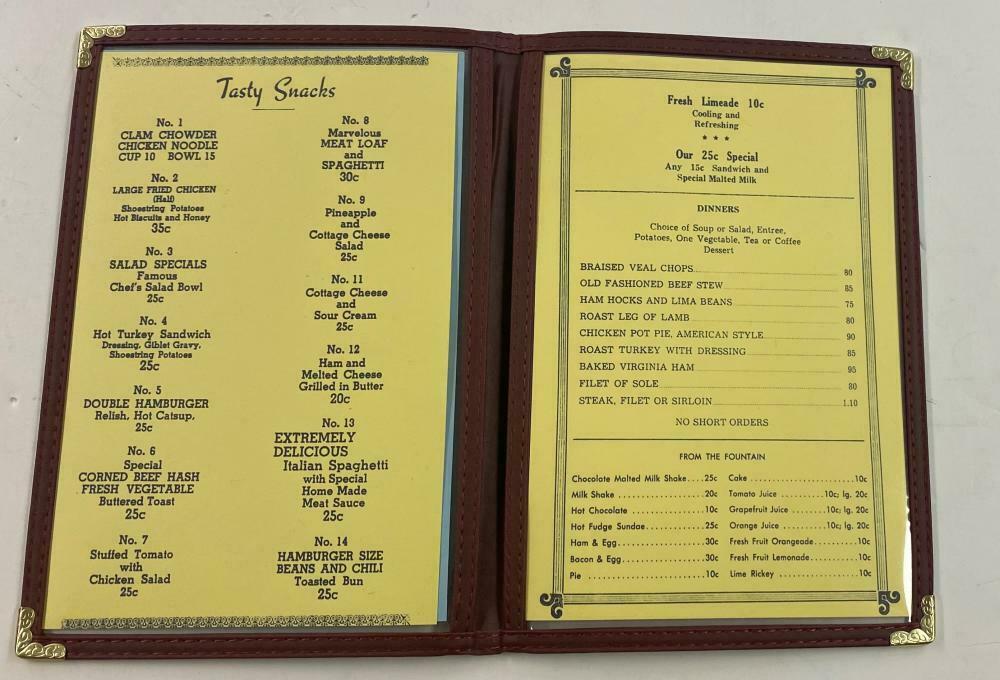 Tasty Snacks
No. 1
CLAM CHOWDER
CHICKEN NOODLE
CUP 10 BOWL 15
No. 2
LARGE FRIED CHICKEN
(Half)
Shoestring Potatoes
Hot Biscuits and Honey
35c
No. 3
SALAD SPECIALS
Famous
Chef's Salad Bowl
25c
No. 4
Hot Turkey Sandwich
Dressing, Giblet Gravy,
Shoestring Potatoes
25c
No. 5
DOUBLE HAMBURGER
Relish, Hot Catsup,
25c
No. 6
Special
CORNED BEEF HASH
FRESH VEGETABLE
Buttered Toast
25c
No. 7
Stuffed Tomato
with
Chicken Salad
25c
No. 8
Marvelous
MEAT LOAF
and
SPAGHETTI
30c
No. 9
Pineapple
and
Cottage Cheese
Salad
25c
No. 11
Cottage Cheese
and
Sour Cream
25c
No. 12
Ham and
Melted Cheese
Grilled in Butter
20c
No. 13
EXTREMELY
DELICIOUS
Italian Spaghetti
with Special
Home Made
Meat Sauce
25c
No. 14
HAMBURGER SIZE
BEANS AND CHILI
Toasted Bun
25c
Fresh Limeade 10c
Cooling and
Refreshing
* * *
Our 25c Special
Any 15c Sandwich and
Special Malted Milk
DINNERS
Choice of Soup or Salad, Entree,
Potatoes, One Vegetable, Tea or Coffee
Dessert
BRAISED VEAL CHOPS 80
OLD FASHIONED BEEF STEW 85
HAM HOCKS AND LIMA BEANS 75
ROAST LEG OF LAMB 80
CHICKEN POT PIE, AMERICAN STYLE 90
ROAST TURKEY WITH DRESSING 85
BAKED VIRGINIA HAM 95
FILET OF SOLE 80
STEAK, FILET OR SIRLOIN 1.10
NO SHORT ORDERS
FROM THE FOUNTAIN
Chocolate Malted Milk Shake....25c
Milk Shake ..................20c
Hot Chocolate ................10c
Hot Fudge Sundae..............25c
Ham & Egg....................30c
Bacon & Egg...................30c
Pie .........................10c
Cake .........................10c
Tomato Juice ........10c; lg. 20c
Grapefruit Juice ......10c; lg. 20c
Orange Juice ........10c; lg. 20c
Fresh Fruit Orangeade..........10c
Fresh Fruit Lemonade...........10c
Lime Rickey ..................10c